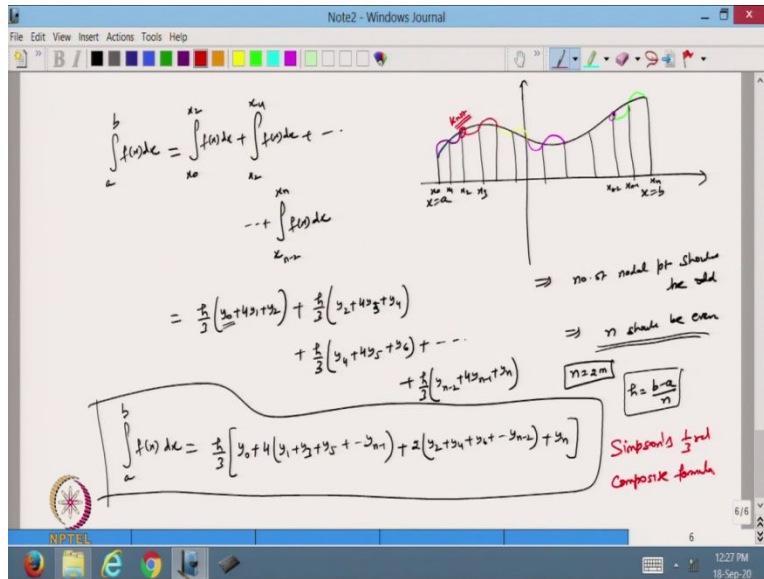 Note2 - Windows Journal
File Edit View Insert Actions Tools Help
∫_a^b f(x)dx = ∫_{x0}^{x2} f(x)dx + ∫_{x2}^{x4} f(x)dx + ...
...+ ∫_{x_{n-2}}^{x_n} f(x)dx
x0 x1 x2 x3 x_{n-2} x_{n-1} x_n
x=a x=b
⇒ no. of nodal pt should
be odd
= h/3 (y0+4y1+y2) + h/3 (y2+4y3+y4)
+ h/3 (y4+4y5+y6) + ---
+ h/3 (y_{n-2}+4y_{n-1}+y_n)
⇒ n should be even
n=2m
h = (b-a)/n
∫_a^b f(x) dx = h/3 [y0+4(y1+y3+y5+--y_{n-1})+2(y2+y4+y6+--y_{n-2})+y_n]
Simpson's 1/3 rd
Composite formula
NPTEL
6/6
6
12:27 PM
18-Sep-20